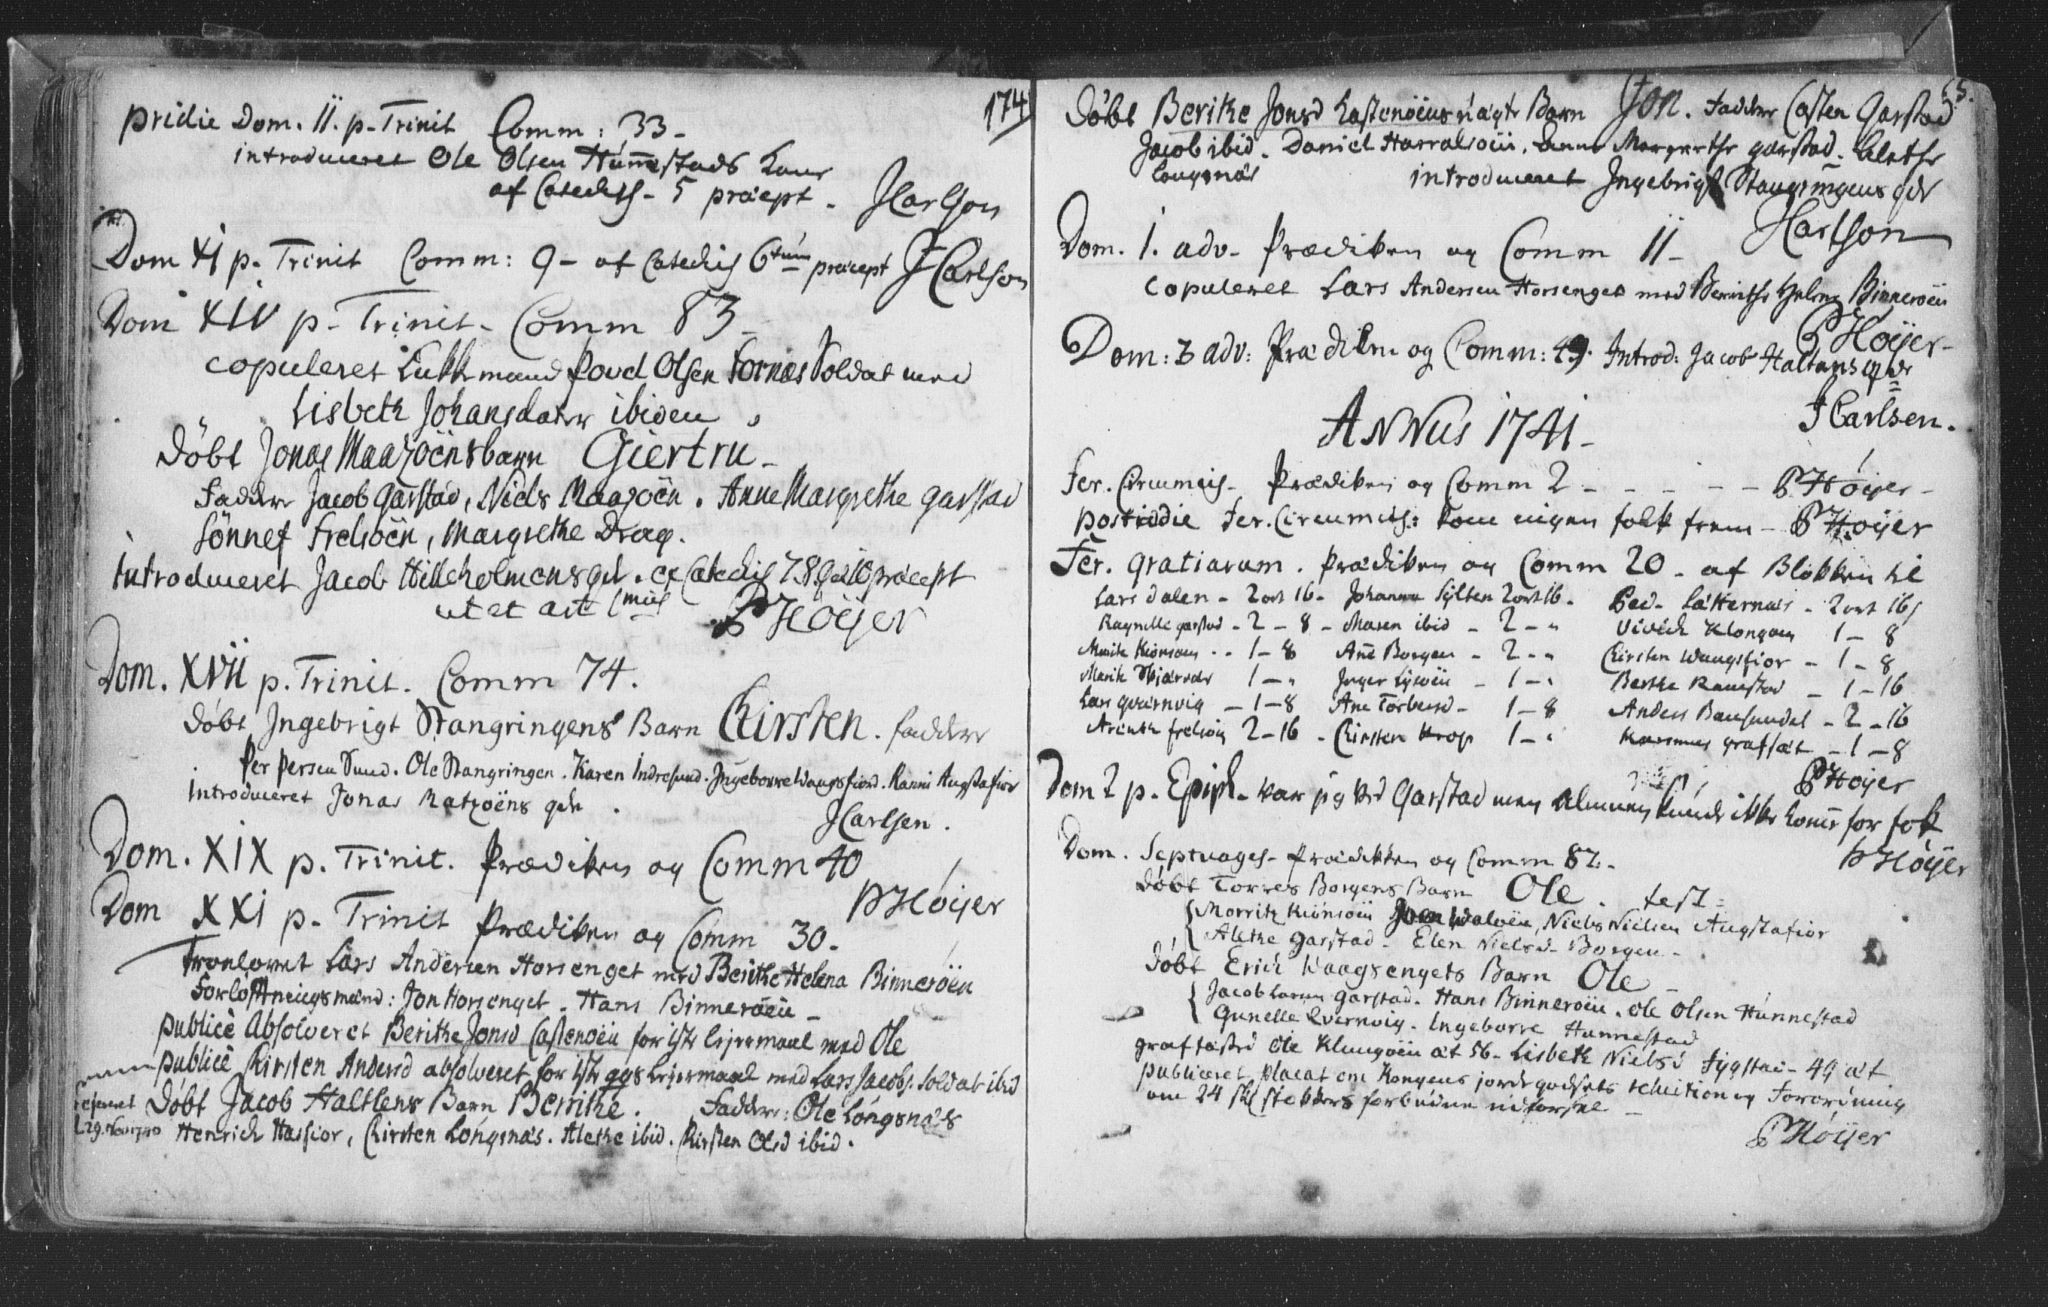 174
pridie Dom. 11. p. Trinit Comm: 33-
introduceret Ole Olsen Hunnestads kone
af Catechis- 5 præcept. JCarlson
Dom XI p. Trinit Comm: 9- af Catechis 6tum præcept JCarlson
Dom XIV p- Trinit- Comm 83-
copuleret Povel Olsen Fornæs Soldat med
Lisbeth Johansdatter ibidem
Døbt Jonas Maasøens barn Giertru-
Fadder Jacob Garstad, Niels Maasøen. Anne Margrethe garstad
Frelsøen, Margrethe Drag.
introduceret Jacob Hilleholmens qv. Catechis 7.8.9 et 10 præcept
PHøÿer
Dom. XVII p. Trinit. Comm 74.
Døbt Ingebrigt Stangringens Barn Chirsten. faddere
Per Persen Sund. Ole Stangringen. Karen Indresund. Ingeborre Waagsfiord. Ranni Augstafior
Introduceret Jonas Matzøens qv.
JCarlsen.
Dom. XIX p. Trinit. Prædiken og Comm 40
PHøÿer
Dom XXI p. Trinit Prædiken og Comm 30-
Trolovet Lars Andersen Horsenget med Berithe Helena Binnerøen
Forløftningsmænd: Jon Horsenget. Hans Binnerøen-
publicè Absolveret Berithe Jonsd Castenøen for 1ste lejermaal med Ole
publicè Kirsten Andersd absolveret for 1ste lejermaal med Lars Jacobs. Soldat ibid
Døbt Jacob Haltlens Barn Berithe. Fadder: Ole Longsnæs
Henrich Hasfior, Chirsten Longsnæs. Alethe ibid. Kirsten Olsd ibid.
Døbt Berithe Jonsd Castenøens uægte Barn Jon. Fadder Casten Garstad
Jacob ibid. Daniel Harralsøen. Anne Margrethe garstad. Alethe
Longsnæs introduceret Ingebrigt Stangringens qv
JCarlson
Dom. 1. adv- Prædiken og Comm 11-
copuleret Lars Andersen Horsenget med Berithe Helene Binnerøen
PHøÿer-
Dom: 3 adv: Prædiken og Comm: 49. Introd: Jacob Haltans qv
JCarlsen.
ANNus 1741-
Fer. Circumcis- Prædiken og Comm 2 - - - - - PHøÿer-
postridie Fer. Circumcis: kom ingen folk frem- PHøÿer
Fer. gratiarum. Prædiken og Comm 20- af Blokken til
Lars dalen- 2 ort 16- Johanna Sylten 2 ort 16- Ped- Lætternæs- 2 ort 16
Ragnille garstad- 2-8- Maren ibid- 2- Vivich Klongøen 1-8
1-8 Ane Borgen- 2- Chirsten Waagsfior- 1-8
1- Inger Lysøen- 1- Berthe Ramstad- 1-16
Lars qværnvig- 1-8 Ane Torbersd- 1-8 Anders Bausundet- 2-16
frelsøen 2-16- Chirsten Krop 1- Rasmus grafsæt- 1-8
PHøÿer
Dom 2 p. Epiph- var jeg ved Garstad men Almuen kunde ikke komme for fok
PHøÿer
Dom. Septuages- Prædikken og Comm 82-
Døbt Torres Borgens Barn Ole. test:
Morrits Kiønsøen Niels Nielsen Augstafior
Alethe garstad- Elen Nielsd- Borgen-
Døbt Erich Waagsengets Barn Ole
Jacob Larsen garstad. Hans Binnerøen. Ole Olsen Hunnestad
Gunelle Qvernvig. Ingeborre Hunnestad
graffæstet Ole Klungøen æt 56- Lisbeth Nielsd 49 æt
publiceret placat om Kongens jordegodsets reluition og Forordning
om 24 forbudne udførsel-
PHøÿer